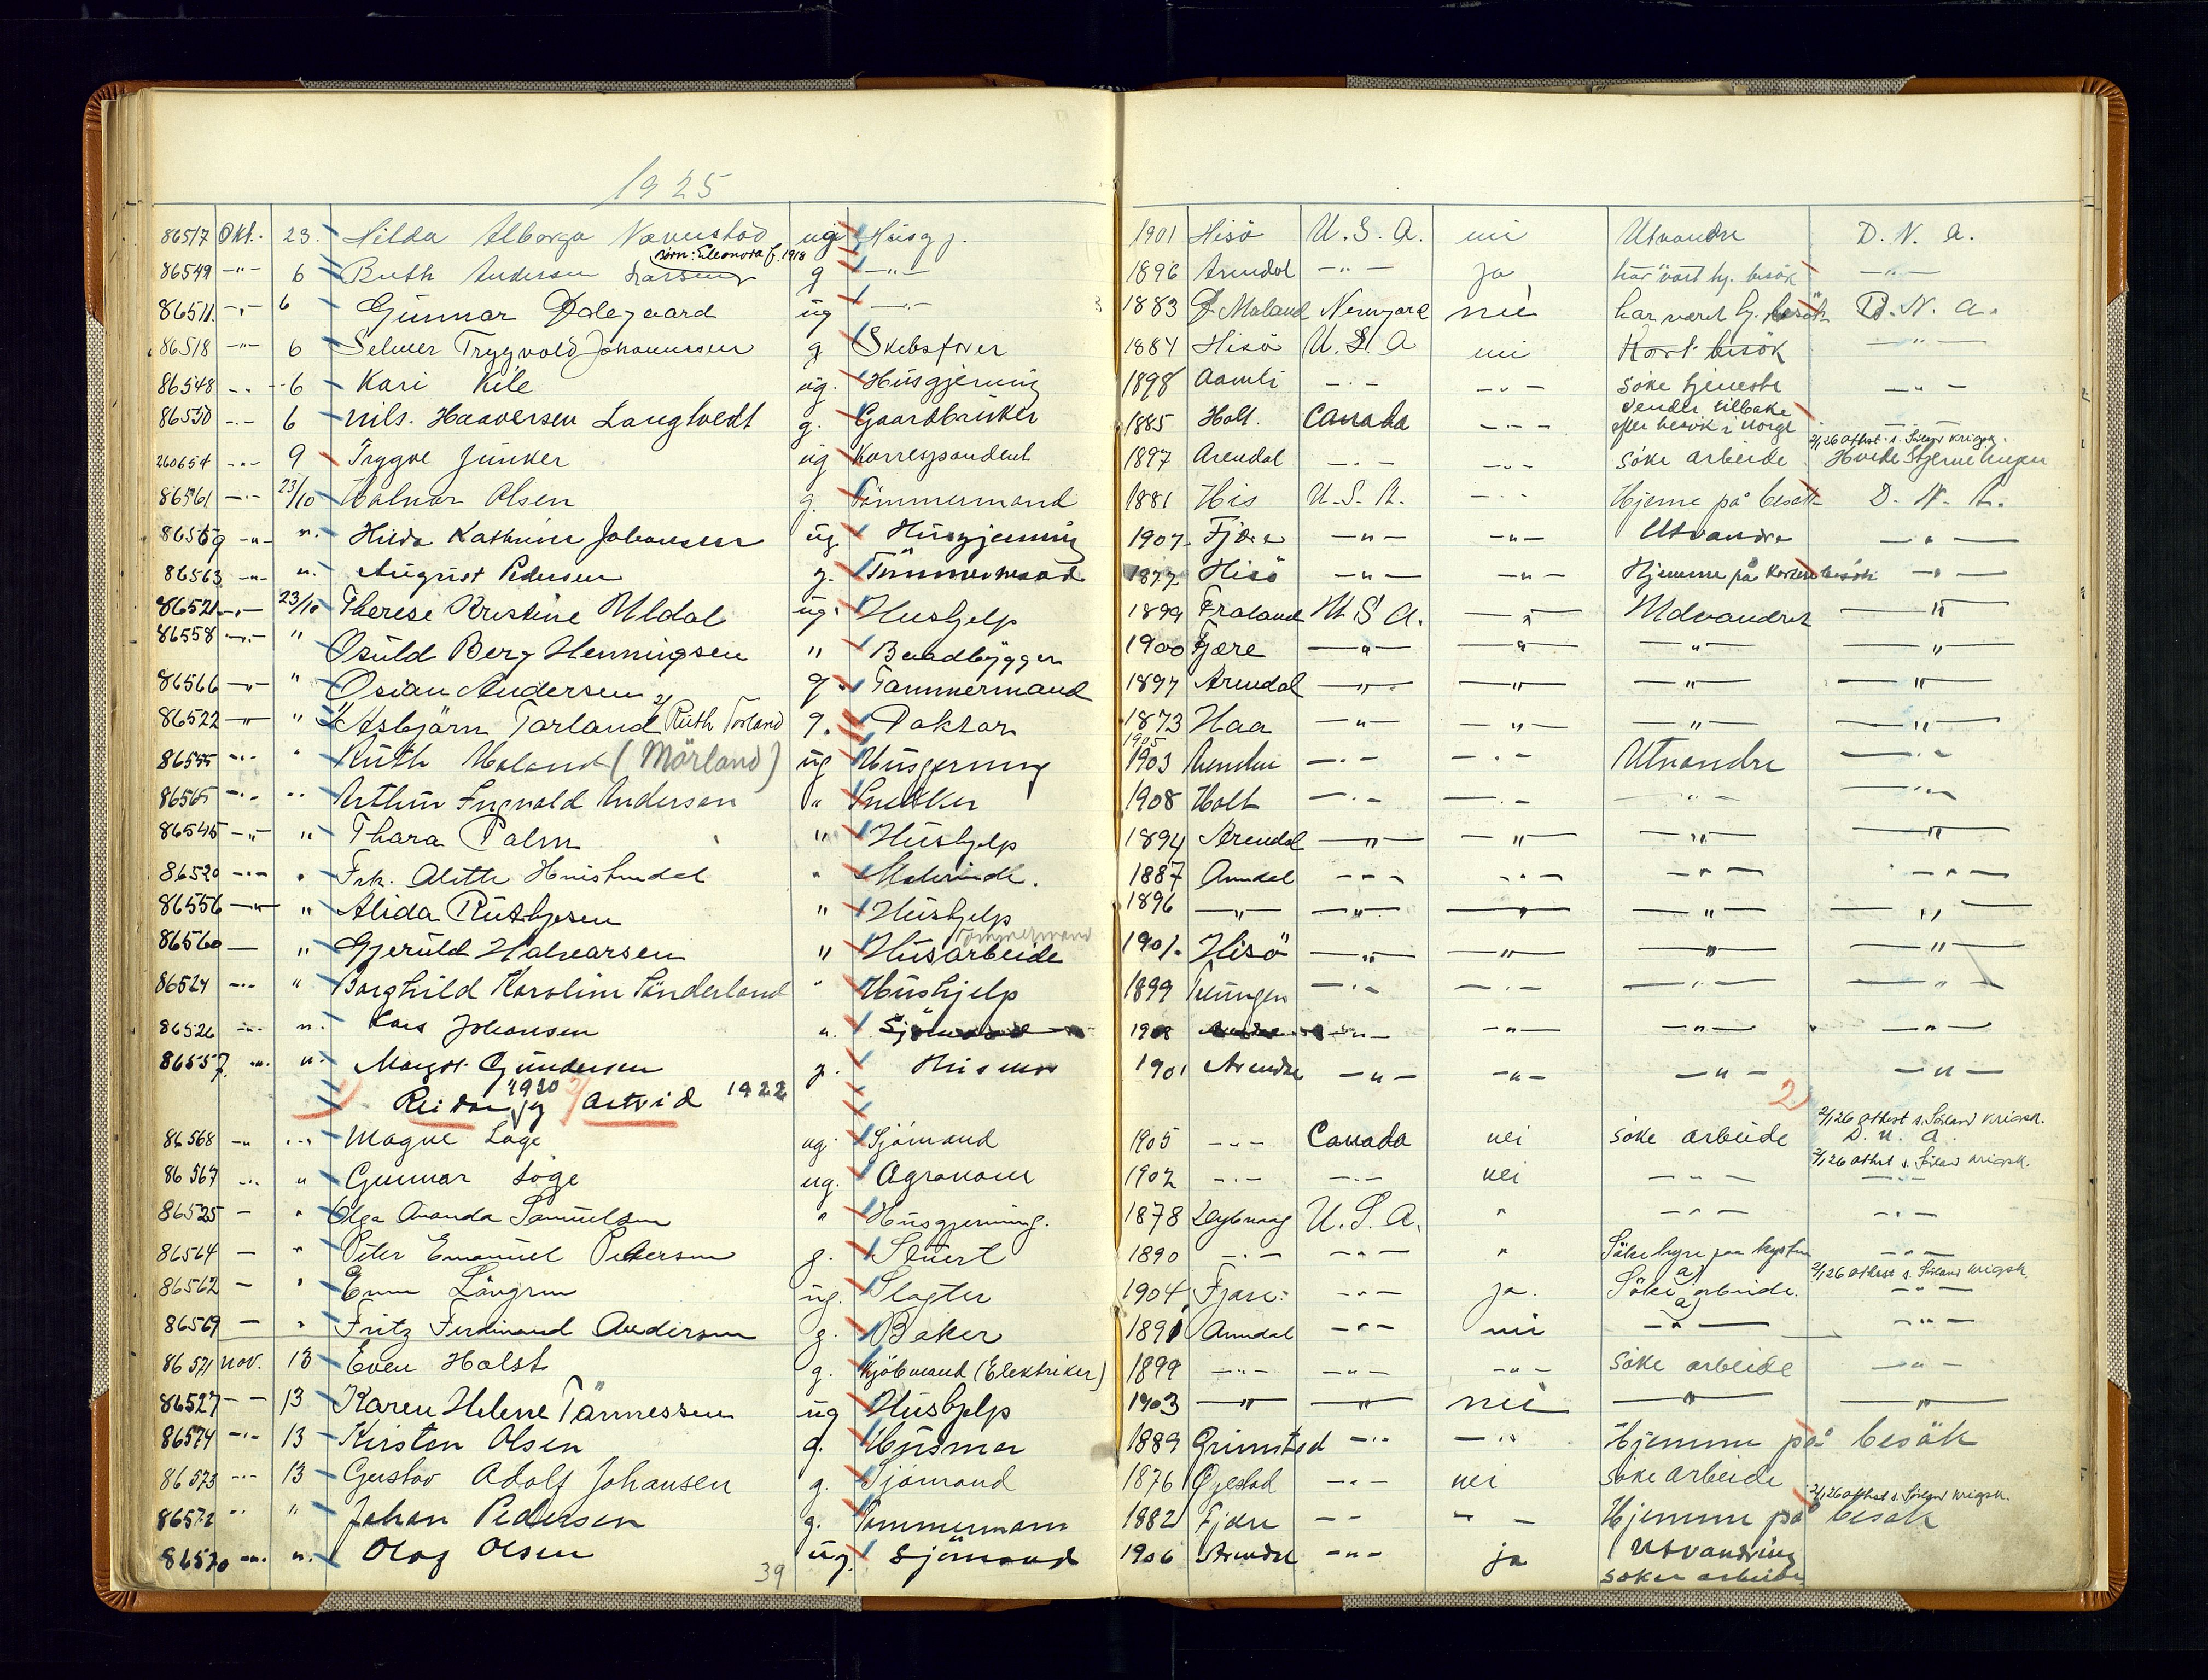 1925
86517 Okt. 23. Hilda Alborga Nævestad ug Husgj. 1901 Hisö U.S.A. nei Utvandre D.N.A.
Barn: Eleonora f. 1918
86549 -"- 6 Ruth Andersen Larsen g -"- 1896 Arendal -"- ja har vært hj. besök -"-
86511 -"- 6 Gunnar Dalegaard ug -"- 1883 Ø Moland Newyork nei har været hj. besök D.N.A.
86518 -"- 6 Selmer Trygvald Johannessen g Skibsfører 1884 Hisö U.S.A nei Kort besök -"-
86548 -"- 6 Kari Kile ug. Husgjerning 1898 Aamli -"- -"- söke tjeneste -"-
86550 -"- 6 Nils Haaversen Langtvedt g. Gaardbruker 1885 Holt. Canada -"- vender tilbake efter besök i Norge -"-
260654 -"- 9 Trygve Junker ug Korrespondent 1897 Arendal -"- -"- söke arbeide 2/1 26 Attest s. Sörland krigsk. Hvite Stjerne linjen
86561 -"- 23/10 Halvor Olsen g. Tömmermand 1881 His U.S.A. -"- Hjeme på besök D.N.A.
86559 -"- ". Hilda Kathrine Johansen ug. Husgjerning 1907. Fjære -"- -"- Utvandre -"-
86563 -"- ". August Pedersen g. Tömmermand 1877 Hisö -"- -"- Hjemme på kortere besök -"-
86521 -"- 23/10 Therese Kristine Uldal ug. Hushjelp 1899 Froland U.S.A. -"- Udvandret -"-
86558 -"- " Osuld Berg Henningsen " Baadbygger 1900 Fjære -"- -"- -"- -"-
86566 -"- " Osian Andersen g. Tømmermand 1897 Arendal -"- -"- -"- -"-
86522 -"- " 1/ Asbjörn Torland 2/ Ruth Torland g. Doktor 1873 Haa -"- -"- -"- -"-
1905
86555 -"- " Ruth Moland (Mörland) ug Husgerning 1903 Arendal -"- -"- Utvandre -"-
86565 -"- " Arthur Ingvald Andersen " Snekker 1908 Holt -"- -"- -"- -"-
86545 -"- " Thora Palm " Hushjelp 1894 Arendal -"- -"- -"- -"-
86520 -"- " Frk. Alette " 1887 Arendal -"- -"- -"- -"-
86556 -"- " Alida " Hushjelp 1896 -"- -"- -"- -"- -"-
Tommermand
86560 — " Gjeruld Halvorsen " Husarbeide 1901. Hisö -"- -"- -"- -"-
86524 -"- " Borghild Karoline Sönderland " Hushjelp 1899 Treungen -"- -"- -"- -"-
86526 -"- ". Lars Johansen ". Sjömand 1908 -"- -"- -"- -"-
86557 -"- ". Margot Gundersen g. Husmor 1901 Arendal -"- -"- -"- -"-
1/ Reidar 1920 og 2/ Astrid 1922 2)
86568 -"- -"- Magne Löge ug. Sjömand 1905 -"- Canada nei söke arbeide 2/1 26 attest s. Sörland krigsk. D.N.A.
86567 -"- " Gunnar Löge ug. Agronom 1902 -"- -"- nei -"- 2/1 26 attest s. Sörland krigsk. -"-
86525 — " Olga Amanda Samuelsen " Husgjerning. 1878 Dybvaag U.S.A. " -"- -"-
86564 — " Peter Emanuel Pettersen g. Stuert 1890 -"- -"- " Söke hyre paa kysten -"-
86562 — " Längren ug. Slagter 1904 Fjære: -"- ja. Söke a) arbeide. 2/1 26 attest s. Sörland krigsk. -"-
86569 — " Fritz Ferdinand Andersen g. Baker 1891 Arendal -"- nei a) -"- -"-
86571 nov. 13 Even Holst g. Kjöbmand (Elektriker) 1899 -"- -"- -"- söke arbeide -"-
86527 -"- 13 Karen Helene Tönnessen ug Hushjelp 1903 -"- -"- nei -"- -"-
86574 -"- 13 Kirsten Olsen g. Husmor 1889 Grimstad -"- -"- Hjemme på besök
86573 -"- 13 Gustav Adolf Johansen g. Sjömand 1876 Öyestad -"- nei söke arbeide 2/1 26 attest s. Sörland krigsk.
86572 -"- " Johan Pedersen g. Tømmermann 1882 Fjære -"- -"- Hjemme på besøk
86570 -"- ". Olaf Olsen ug. Sjömand 1906 Arendal -"- ja Utvandring
soker arbeide
39